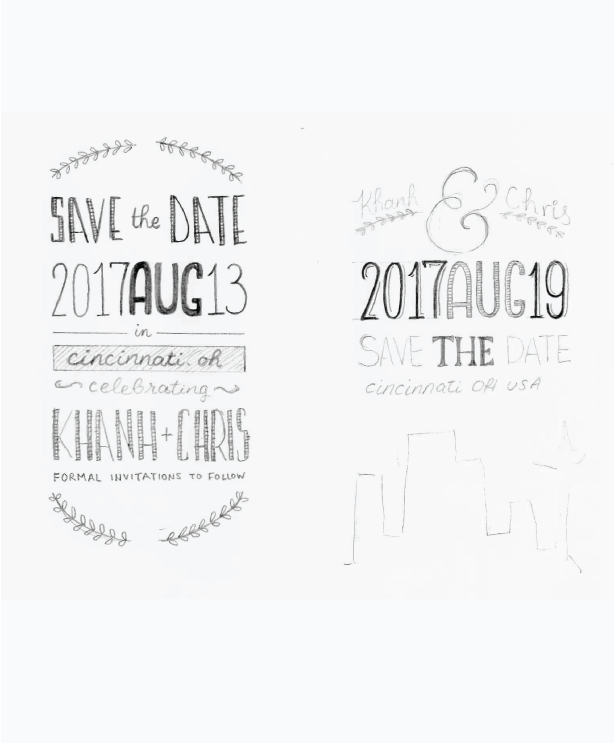 SAVE the DATE
2017AUG13
in
cincinnati. oh
celebrating
KHANH+CHRIS
FORMAL INVITATIONS TO FOLLOW
Khanh & Chris
2017AUG19
SAVE THE DATE
cincinnati OH USA